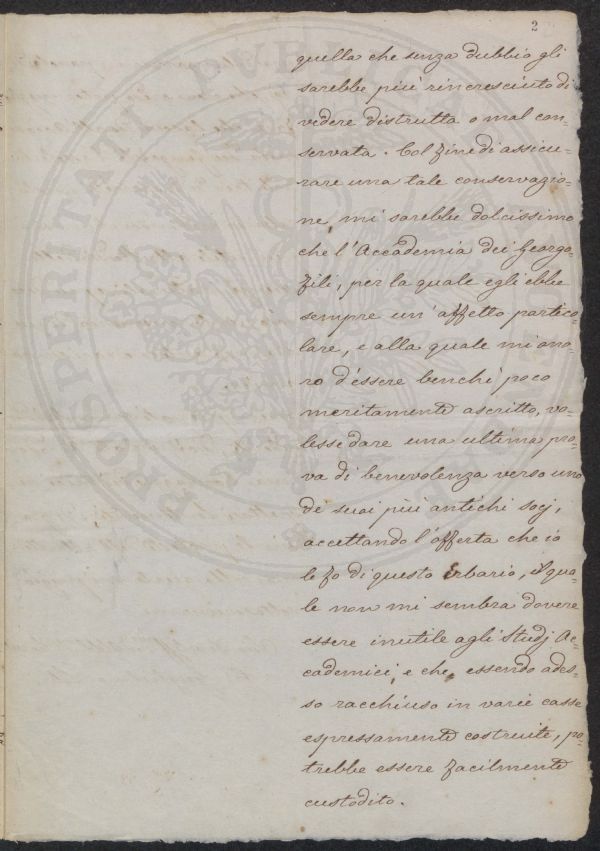 2
quella che senza dubbio gli
sarebbe più rincresciuto di
vedere distrutta o mal con=
servata. Col fine di assicu=
rare una tale conservazio=
ne, mi sarebbe dolcissimo
che l'Accademia dei Georgo=
fili, per la quale egli ebbe
sempre un'affetto partico=
lare, e alla quale mi ono=
ro d'éssere benchè poco
meritamente ascritto, vo=
lesse dare una ultima pro=
va di benevolenza verso uno
de' suoi più antichi socj,
accettando l'offerta che io
le fo di questo Erbario, il qua=
le non mi sembra dovere
essere inutile agli Studj Ac=
cademici, e che, essendo ades=
so racchiuso in varie casse
espressamente costruite, po=
trebbe essere facilmente
custodito.
PROSPERITATI PUBLICAE